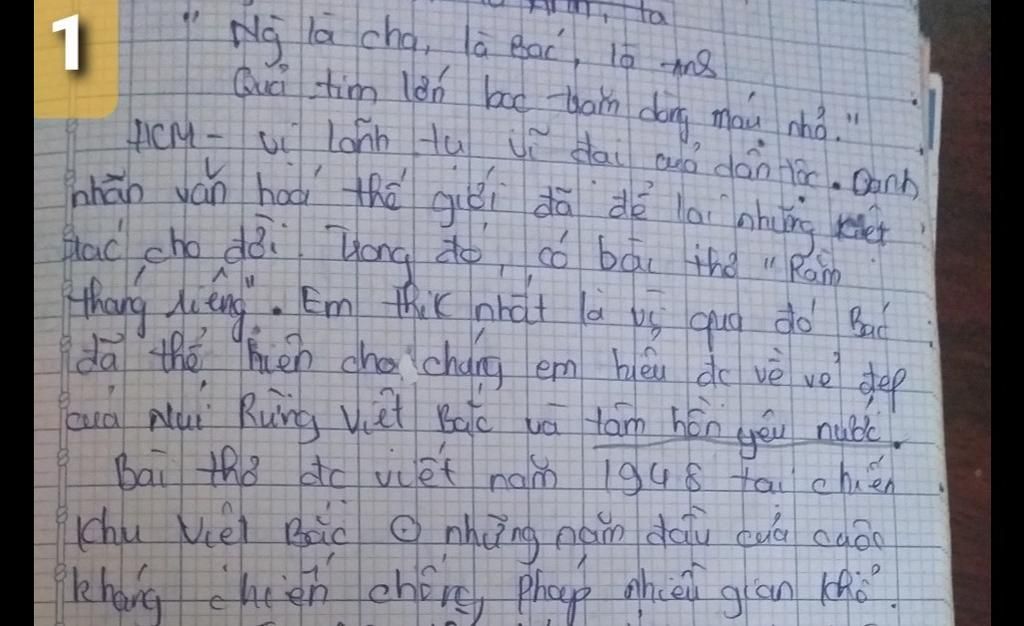 1
ta
" Ng là cha, là Bác, là anh
Quả tim lớn bọc trăm dòng máu nhỏ."
HCM - vị lãnh tụ vĩ đại của dân tộc. Danh
nhân văn hoá thế giới đã để lại những kiệt
tác cho đời. Trong đó, có bài thơ "Rằm
tháng Riêng". Em thik nhất là vì qua đó Bác
đã thể hiện cho chúng em hiểu đc về vẻ đẹp
của Núi Rừng Việt Bắc và tâm hồn yêu nước.
Bài thơ đc viết năm 1948 tại chiến
khu Việt Bắc những năm đầu của cuộc
kháng chiến chống Pháp nhiều gian khổ.